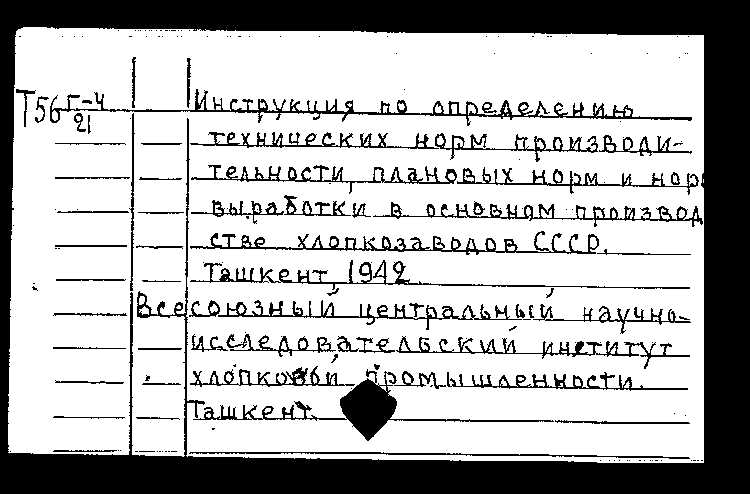 Т56 Г-4/21
Инструкция по определению
технических норм производи-
тельности, плановых норм и нор
выработки в основном производ
стве хлопкозаводов СССР.
Ташкент, 1942.
Всесоюзный центральный научно-
исследовательский институт
хлопковой промышленности.
Ташкент.